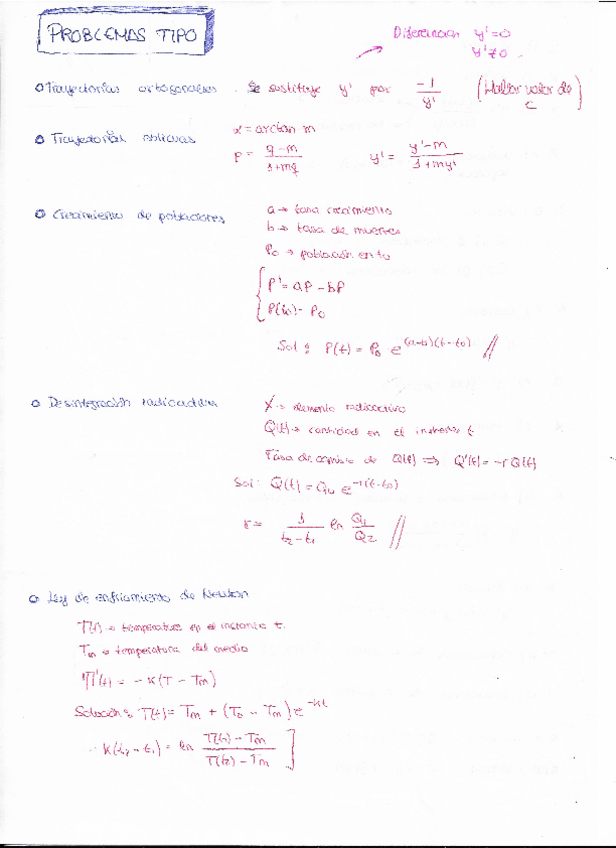 PROBLEMAS TIPO
Diferenciar y'=0
y'≠0
○ Trayectorias ortogonales. Se sustituye y' por -1/y' (Hallar valor de C)
○ Trayectorias oblicuas α = arctan m
P = (q-m)/(1+mq) y' = (y'-m)/(1+my')
○ Crecimiento de poblaciones a → tasa crecimiento
b → tasa de muertes
P₀ → población en t₀
{ P' = aP - bP
P(t₀) = P₀
Sol: P(t) = P₀ e^(a-b)(t-t₀) //
○ Desintegración radioactiva X → elemento radioactivo
Q(t) → cantidad en el instante t
Tasa de cambio de Q(t) ⇒ Q'(t) = -r Q(t)
Sol: Q(t) = Q₀ e^-r(t-t₀)
r = 1/(t₂-t₁) ln Q₁/Q₂ //
○ Ley de enfriamiento de Newton
T(t) → temperatura en el instante t.
Tm → temperatura del medio
T'(t) = -K(T - Tm)
Solución: T(t) = Tm + (T₀ - Tm) e^-kt
K(t₂-t₁) = ln (T(t₁) - Tm)/(T(t₂) - Tm) ]